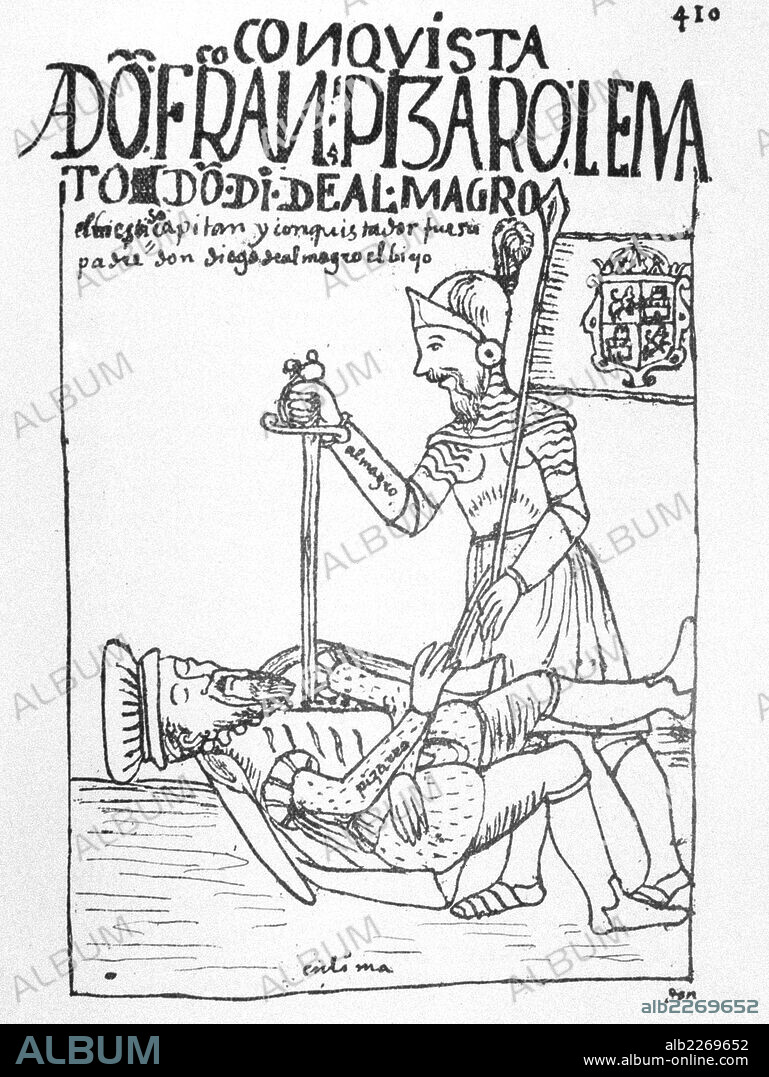 410
CONQVISTA
ADÕ·FRAN^CO·PIZARO·LEMA
TO DÕ·DI·DEAL·MAGRO
el mestiso capitan y conquistador fue su
padre don diego de almagro el biejo
almagro
pizarro
en lima
don
ALBUM
alb2269652
ALBUM
alb2269652
www.album-online.com